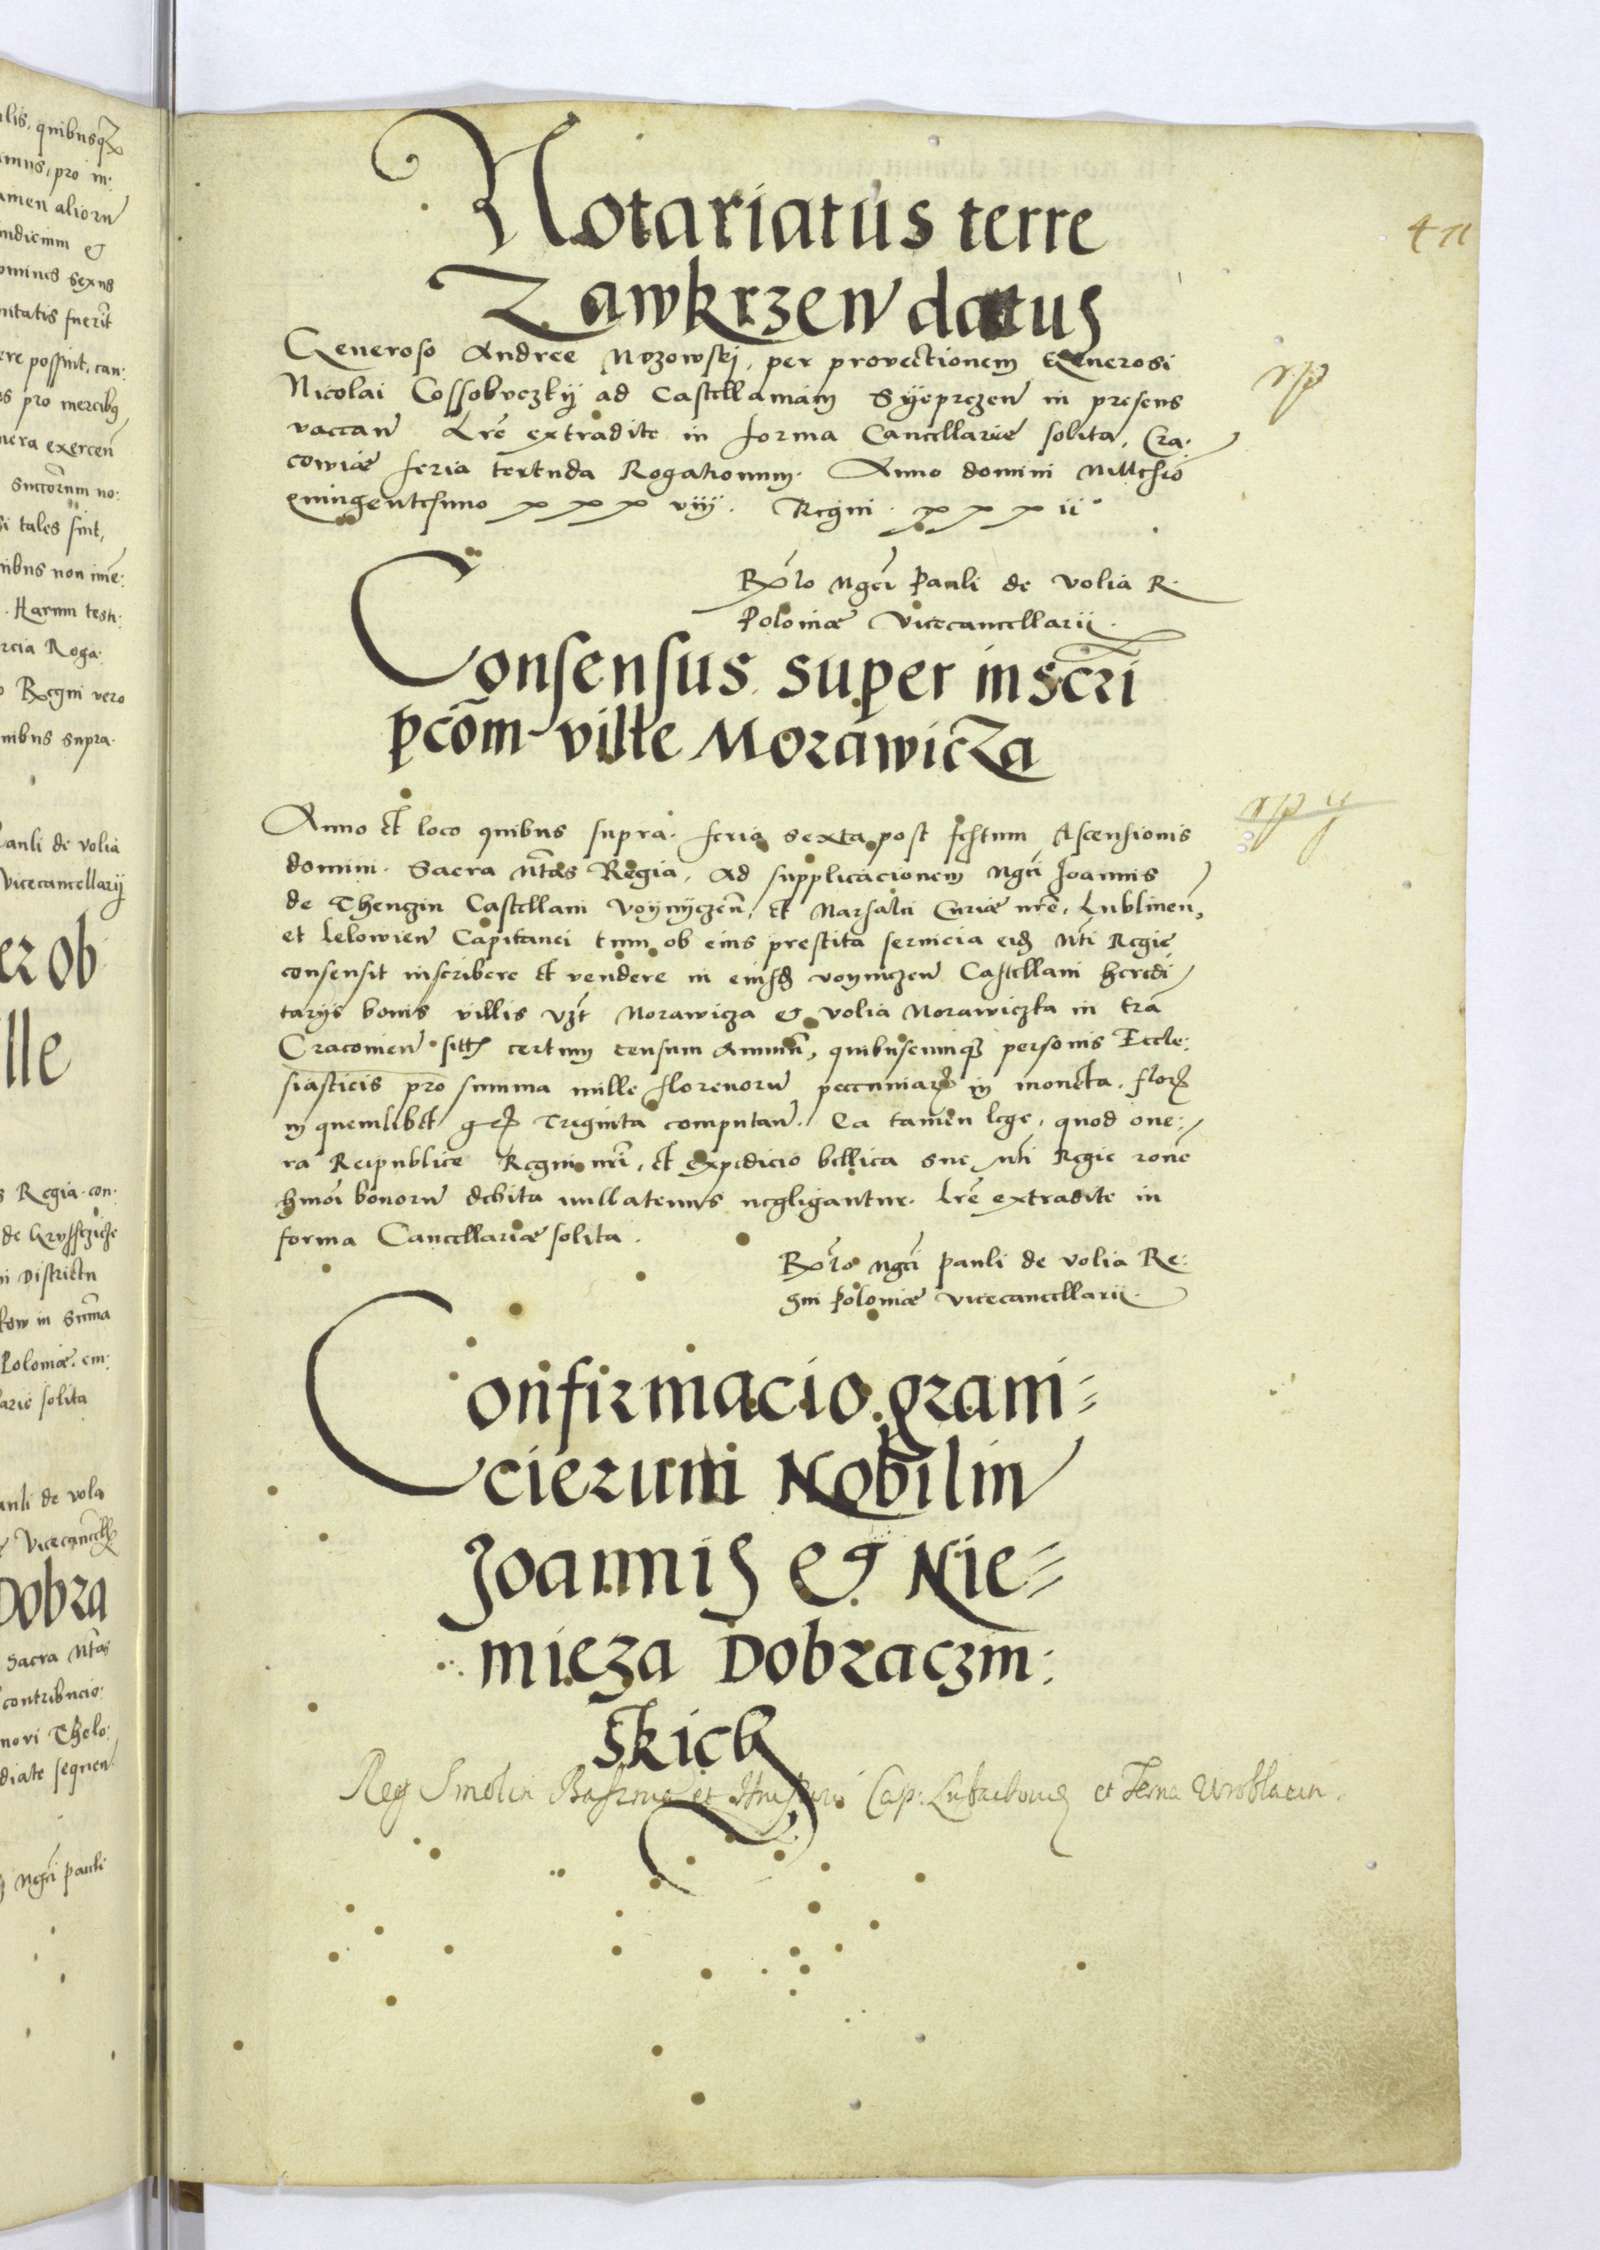 lis, quibusq
mus, pro in:
amen aliorū
indicium &
omines sexus
nitatis fuerīt
ere possint, cau:
s pro mercibus
nera exercen
succorum no:
si tales sint,
nibus non ime:
Harum testi:
rcia Roga:
Regni vero
nibus supra.
Pauli de volia
Vicecancellarij
er ob
lle
Regia con:
de
ni Districtu
kow in Summa
Poloniæ. em:
larie solita
auli de vola
Vicecancell
Dobra
Sacra Mtas
contribucio:
novi Thelo:
diate sequen
Mgci pauli
Notariatus terre
Zawkrzen datus
411
Generoso Andree Mozowskj, per provectionem Generosi
Nicolai Cossobvczkij ad Castellaniam Syeprczen in presens
vaccan Lrē extradite in forma Cancellariæ solita. Cra:
coviæ feria secunda Rogationum. Anno domini Millesīo
Quingentesimo xxxviij. Regni. xxxii
Rlo Mgci Pauli de Volia R.
Poloniæ Vicecancellarij.
Consensus super inscri
pcōm ville Morawicza
Anno et loco quibus supra. feria sexta post festum Ascensionis
domini. Sacra Mtas Regia, ad supplicacionem Mgci Joannis
de Thenczin Castellani Voynyczen, et Marsalci Curiæ nrē, Lublinen,
et Lelowien Capitanei tum ob eius prestita servicia eid Mti Regie
consensit inscribere et vendere in eiusd voyniczen Castellani heredi
tarys bonis villis vzt Morawicza & volia Morawiczka in trā
Cracovien sitt certum censum annuū, quibuscunqz personis Eccle:
siasticis pro summa mille florenorū peccuniar in moneta. flor
in quemlibet gr Triginta computan. Ea tamen lege, quod one:
ra Reipublice Regni nrī, et expedicio bellica sue Mti Regie rone
hmōi bonorū debita nullatenus negligantur. Lrē extradite in
forma Cancellariæ solita.
Rlo Mgci Pauli de volia Re:
gni Poloniæ vicecancellarij.
Confirmacio grani=
cierum Nobiliū
Joannis & Nie=
miecza Dobraczin:
skich
Smolin et Cap: et Wroblacin.